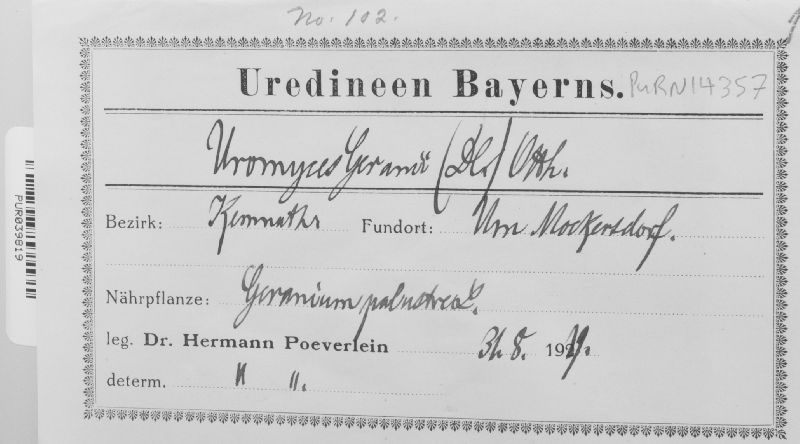 No. 102.
Uredineen Bayerns. PURN14357
Uromyces Geranii (DC.) Otth.
Bezirk: Kemnath Fundort: Um Mockersdorf.
Nährpflanze: Geranium palustre L.
leg. Dr. Hermann Poeverlein 31. 8. 19
determ. " ".
PUR039819